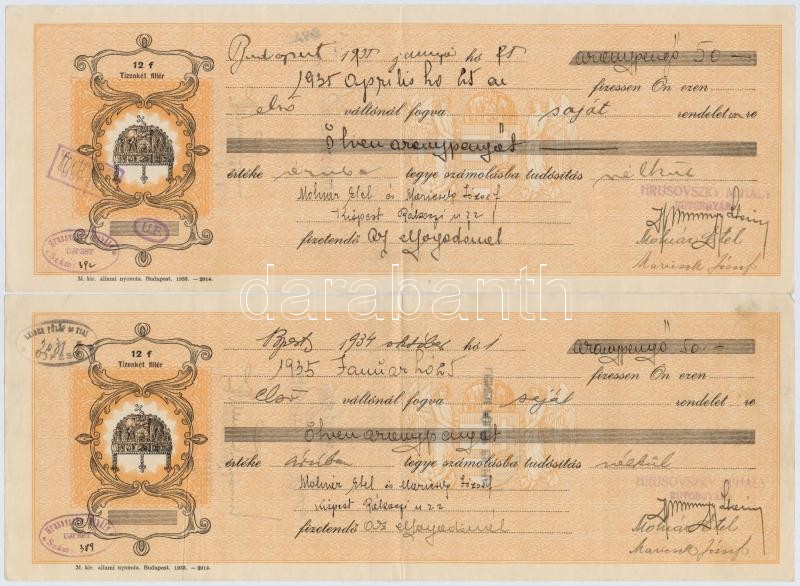 12 f
Tizenkét fillér
Budapest 1935 ho 25 aranypengő 50 –
1935 április hó 25 én fizessen Ön ezen
első váltónál fogva saját rendelet re
Ötven aranypengőt
értéke áruba tegye számolásba tudósítás nélkül
HRUSOVSZKY MIHÁLY
BUTORGYÁR
Molnár Etel és József
Kispest Rákóczi u 22
fizetendő Az elfogadónál
Molnár Etel
József
ÚJPEST
Szám: 392
M. kir. állami nyomda. Budapest. 1933. — 2914.
darabanth
12 f
Tizenkét fillér
Bpest, 1934 október hó 1 aranypengő 50 –
1935 Január hó 25 fizessen Ön ezen
első váltónál fogva saját rendelet re
Ötven aranypengőt
értéke áruban tegye számolásba tudósítás nélkül
HRUSOVSZKY MIHÁLY
BUTORGYÁR
Molnár Etel és József
Kispest Rákóczi u 22
fizetendő az elfogadónál
Molnár Etel
József
ÚJPEST
Szám: 389
M. kir. állami nyomda. Budapest. 1933. — 2914.